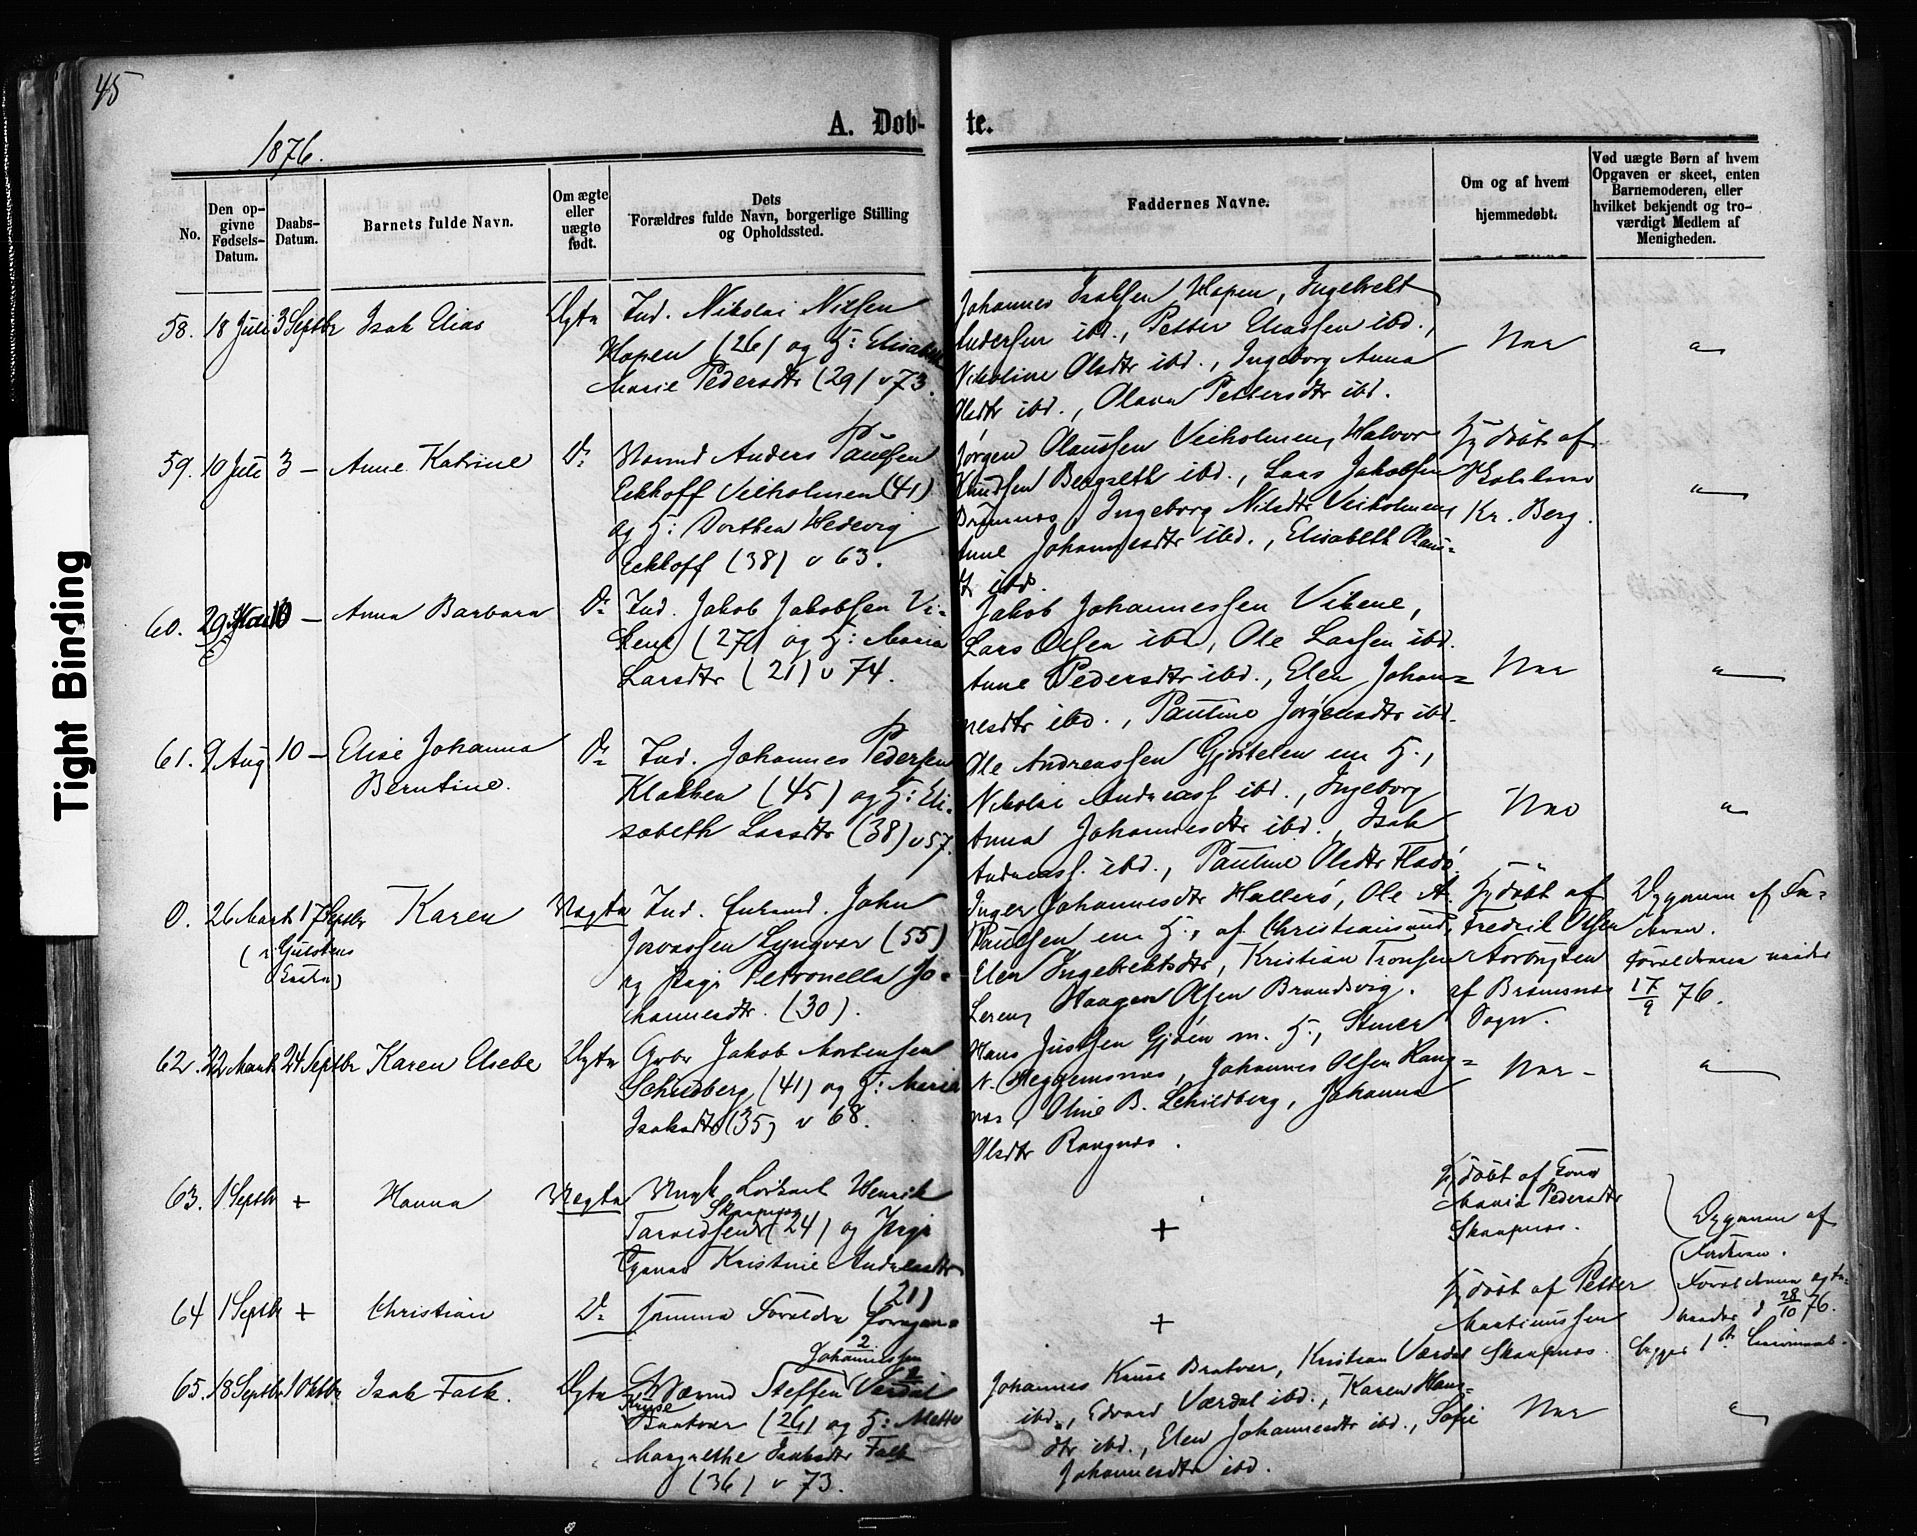 45
1876.
A. Døb- te.
No.
Den op-
givne
Fødsels-
Datum.
Daabs-
Datum.
Barnets fulde Navn.
Om ægte
eller
uægte
født.
Dets
Forældres fulde Navn, borgerlige Stilling
og Opholdssted.
Faddernes Navne.
Om og af hvem
hjemmedøbt.
Ved uægte Børn af hvem
Opgaven er skeet, enten
Barnemoderen, eller
hvilket bekjendt og tro-
værdigt Medlem af
Menigheden.
58. 18 Juli 3 Septbr Isak Elias Ægte
Ind. Nikolai Nilsen
Hopen (26) og H: Elisabeth
Marie Pedersdtr (29) v 73.
Johannes Isaksen Hopen, Ingebrekt
Andersen ibd., Petter Eliassen ibd.,
Nikoline Olsdtr ibd., Ingeborg Anna
Olsdtr ibd., Olava Pettersdtr ibd.
Nei
"
59. 10 Juli 3 - Anne Katrine Do
Anders Paulsen
Ekhoff Veiholmen (41)
og H: Dorthea Hedevig
Ekhoff (38) v 63.
Jørgen Olaussen Veiholmen, Halvor
Knudsen Bergseth ibd., Lars Jakobsen
Ingeborg Nilsdtr Veiholmen,
Anne Johannesdtr ibd., Elisabeth Olaus-
ibd.
Hj. døbt af
Kr. Berg.
"
60. 29 10 - Anna Barbara Do
Ind. Jakob Jakobsen Vi-
kene (27) og H: Maria
Larsdtr (21) v 74.
Jakob Johannessen Vikene,
Lars Olsen ibd, Ole Larsen ibd.
Anne Pedersdtr ibd., Elen Johan-
nesdtr ibd., Pauline Jørgensdtr ibd.
Nei
"
61. 9 Aug 10 - Elise Johanna
Berntine.
Do
Ind. Johannes Pedersen
Klakken (45) og H: Eli-
sabeth Larsdtr (38) v 57.
Ole Andreassen Gjestelen m. H.,
Nikolai Andreass. ibd., Ingeborg
Anna Johannesdtr ibd., Isak
Andreass. ibd., Pauline Olsdtr Flatø.
Nei
"
0. 26 Marts 17 Septbr Karen Uægte
Ind. Enkemd. John
Lyngvær (55)
og Pige Petronella Jo-
hannesdtr. (30).
Inger Johannesdtr Hallerø, Ole A.
Paulsen m. H., af Christiansund,
Elen Ingebrektsdtr, Kristian Tronsen
Haagen Olsen Brandsvig.
Hj døbt af
Fredrik Olsen
af Bremsnes
Sogn.
Opgaven af Fa-
deren.
Forældrene
17/9 76.
62. 22 Marts 24 Septbr Karen Elsebe Ægte
Gbr Jakob Mortensen
Schildberg (41) og H: Marie
Isaksdtr (35) v 68.
Hans Justsen Gjøen m. H.,
N. Heggemsnes, Johannes Olsen Haug-
nes, Oline B. Schildberg, Johanna
Olsdtr Rangnes.
Nei -
"
63. 1 Septbr + Hanna Uægte
Ungk. Henrik
Skarpnes
(24) og Pige
Kristine Andreasdtr
(21)
+
Hj døbt af
Maria Pedersdtr
Skarpnes.
Opgaven af
Faderen.
64 1 Septbr + Christian Do
samme Forældre
+
Hj døbt af Petter
Martinussen
Skarpnes.
Forældrene
28/10 76.
begges 1st
65. 18 Septbr 1 Oktbr Isak Falk. Ægte
Johannessen
Steffen Værdal
Kruse
Bratvær (26) og H: Mette
Margrethe Isaksdtr Falk
(36) v 73.
Johannes Kruse Bratvær, Kristian Værdal
ibd., Edvard Værdal ibd., Karen Hans-
dtr ibd., Elen Johannesdtr ibd., Sofie
Johannesdtr ibd.
Nei
"
Tight Binding